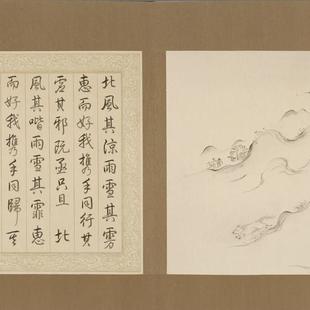 北風其涼雨雪其雱
惠而好我攜手同行其
虛其邪既亟只且 北
風其喈雨雪其霏惠
而好我攜手同歸 其